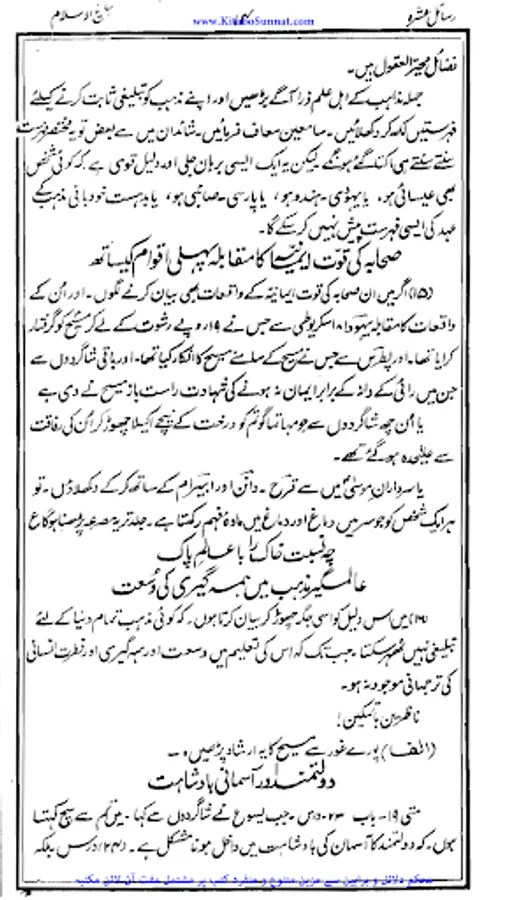 رسائل عشرہ
www.KitaboSunnat.com
تبلیغ الاسلام
فضائل محیر العقول ہیں۔
جملہ مذاہب کے اہل علم ذرا آگے بڑھیں اور اپنے مذہب کو تبلیغی ثابت کرنے کیلئے
فہرستیں لکھ کر دکھلائیں۔ سامعین معاف فرمائیں۔ شاید ان میں سے بعض تو یہ مختصر فہرست
سنتے سنتے ہی اکتا گئے ہونگے لیکن یہ ایک ایسی برہان جلی اور دلیل قوی ہے کہ کوئی شخص
بھی عیسائی ہو، یا یہودی۔ ہندو ہو، یا پارسی۔ صائبی ہو، یا بدھست خود بانی مذہب کے
عہد کی ایسی فہرست پیش نہیں کر سکے گا۔
صحابہ کی قوت ایمانیہ کا مقابلہ پہلی اقوام کیساتھ
(۱۵) اگر میں ان صحابہ کی قوت ایمانیہ کے واقعات بھی بیان کرنے لگوں۔ اور ان کے
واقعات کا مقابلہ یہوداہ اسکریوطی سے جس نے ۱۹ روپے رشوت کے لے کر مسیح کو گرفتار
کرایا تھا۔ اور پطرس سے جس نے مسیح کے سامنے مسیح کا انکار کیا تھا۔ اور باقی شاگردوں سے
جن میں رائی کے دانہ کے برابر ایمان نہ ہونے کی شہادت راست باز مسیح نے دی ہے
یا اُن چھ شاگردوں سے جو مہاتما گوتم کو درخت کے نیچے اکیلا چھوڑ کر اُن کی رفاقت
سے علیحدہ ہو گئے تھے۔
یا سرداران موسیٰ میں سے قورح۔ داتن اور ابیرام کے ساتھ کر کے دکھلاؤں۔ تو
ہر ایک شخص کو جو سر میں دماغ اور دماغ میں مادۂ فہم رکھتا ہے۔ جلد تر یہ مصرعہ پڑھنا ہوگا ع
چہ نسبت خاک را با عالم پاک
عالمگیر مذہب میں ہمہ گیری کی وسعت
(۱۶) میں اس دلیل کو اسی جگہ چھوڑ کر بیان کرتا ہوں۔ کہ کوئی مذہب تمام دنیا کے لئے
تبلیغی نہیں ٹھہر سکتا۔ جب تک کہ اس کی تعلیم میں وسعت اور ہمہ گیری اور فطرت انسانی
کی ترجمانی موجود نہ ہو۔
ناظرین باتمکین!
(الف) پورے غور سے مسیح کا یہ ارشاد پڑھیں۔
دولتمند اور آسمانی بادشاہت
متی ۱۹۔ باب ۲۳۔ درس۔ جب یسوع نے شاگردوں سے کہا۔ میں تم سے سچ کہتا
ہوں۔ کہ دولتمند کا آسمان کی بادشاہت میں داخل ہونا مشکل ہے۔ (۲۴) درس بلکہ
محکم دلائل و براہین سے مزین متنوع و منفرد کتب پر مشتمل مفت آن لائن مکتبہ